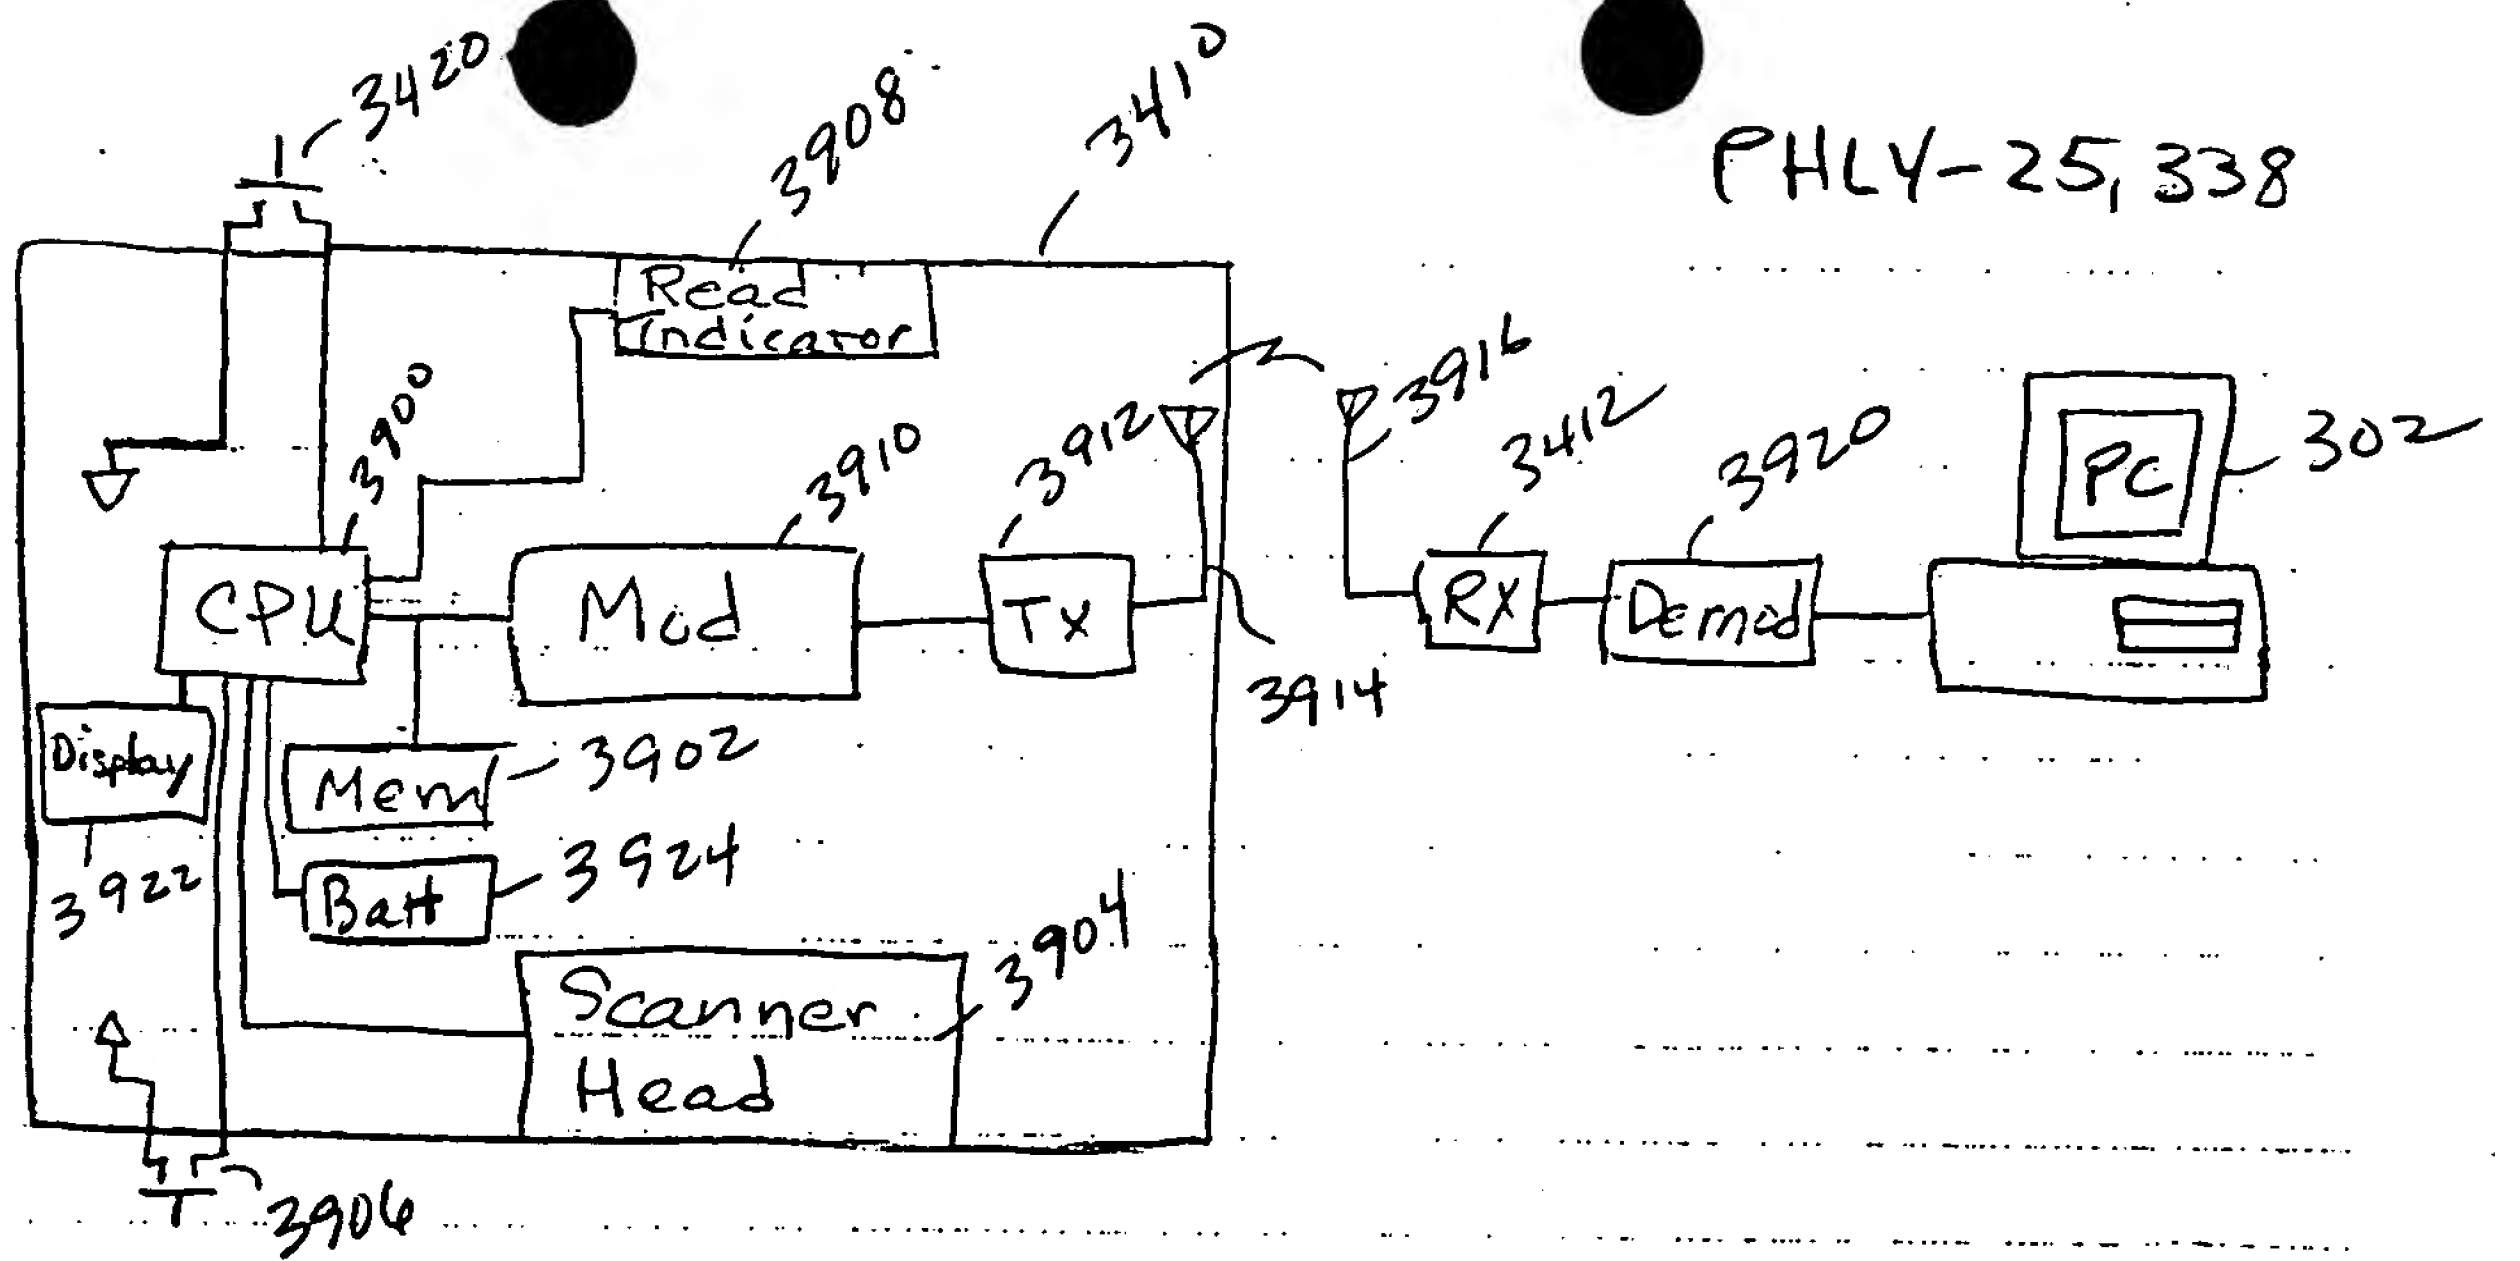 3420
3908
3410
PHLY-25,338
Read
Indicator
3900
3910
3912
3916
3412
3920
302
PC
CPU
Mod
TX
RX
Demod
3914
Display
Mem
3902
3922
Batt
3924
Scanner
Head
3904
3906